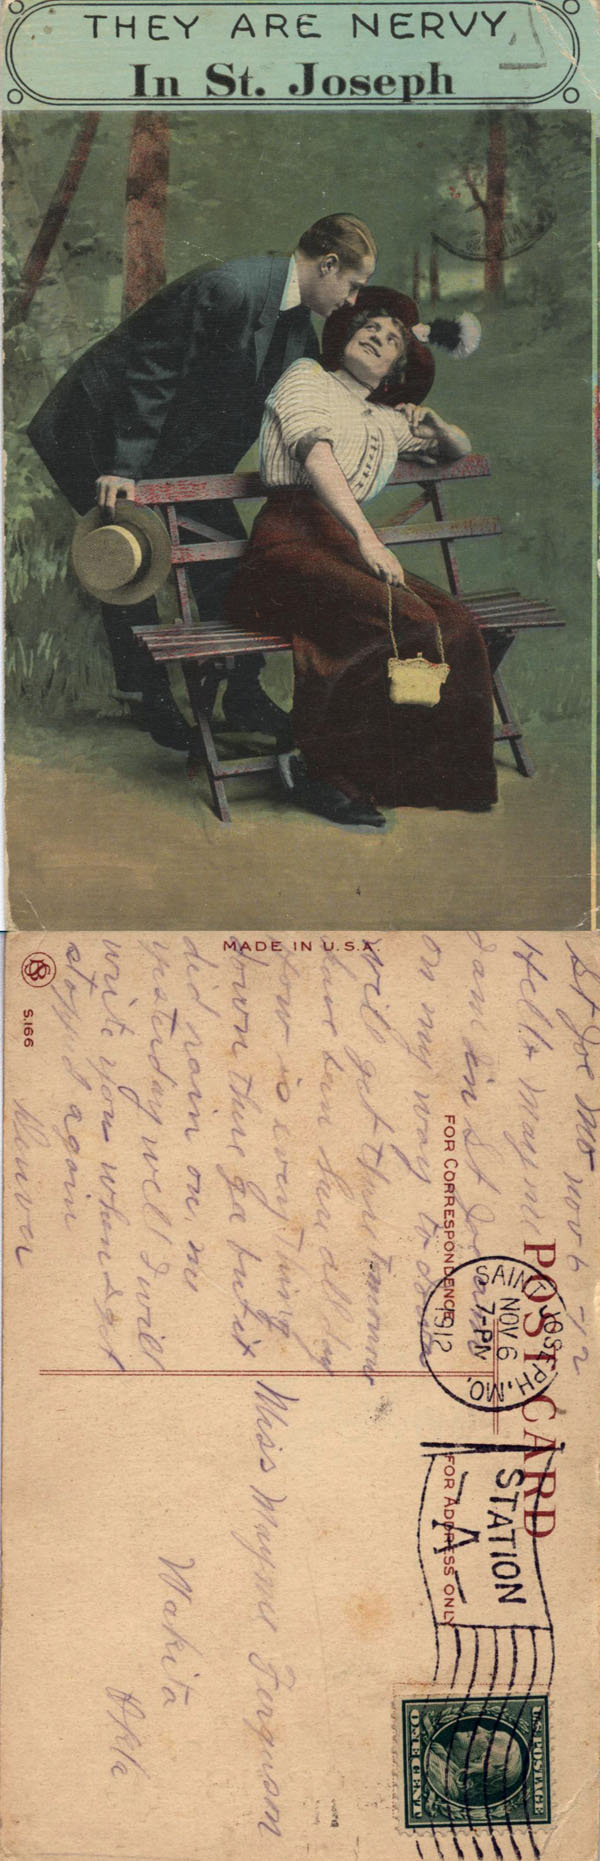 THEY ARE NERVY
In St. Joseph
MADE IN U.S.A.
S.166
POST CARD
FOR CORRESPONDENCE
FOR ADDRESS ONLY
St Joe Mo Nov 6 - 12
Hello Mayme
I am in St Joe
on my way to
will get there tomorrow
have been here all day
How is every thing
down there
did rain on me
yesterday well I will
write you when I get
stopped again
SAINT JOSEPH, MO.
NOV 6
7-PM
1912
STATION
A
U.S. POSTAGE
ONE CENT
Miss Mayme Ferguson
Wakita
Okla